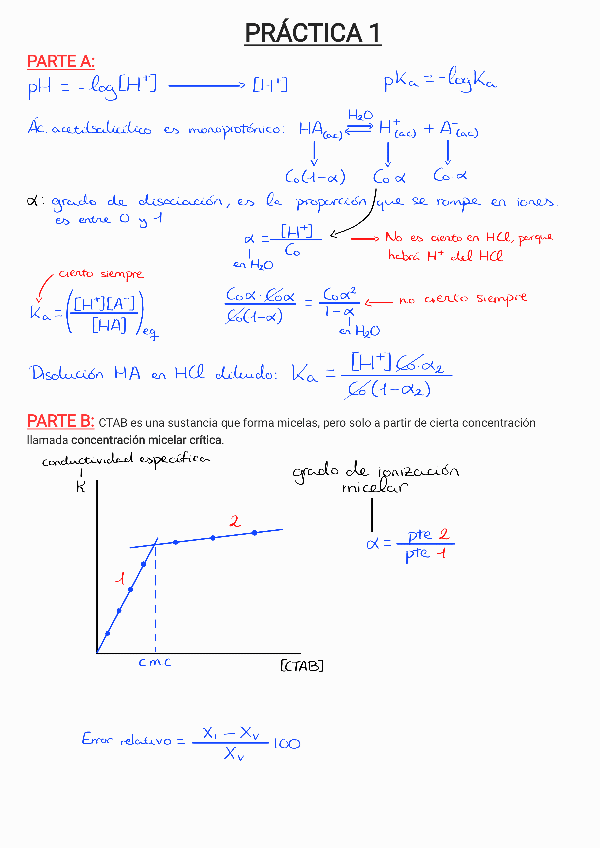 PRÁCTICA 1
PARTE A:
pH = -log[H⁺] → [H⁺]
pKa = -logKa
Ác. acetilsalicílico es monoprotónico: HA(ac) ⇌ H₂O H⁺(ac) + A⁻(ac)
C₀(1-α) C₀α C₀α
α: grado de disociación, es la proporción que se rompe en iones.
es entre 0 y 1
α = [H⁺] / C₀ → No es cierto en HCl, porque
en H₂O
habrá H⁺ del HCl
cierto siempre
Ka = ([H⁺][A⁻] / [HA])eq
C₀α · C₀α / C₀(1-α) = C₀α² / 1-α ← no cierto siempre
en H₂O
Disolución HA en HCl diluido: Ka = [H⁺] C₀·α₂ / C₀(1-α₂)
PARTE B: CTAB es una sustancia que forma micelas, pero solo a partir de cierta concentración
llamada concentración micelar crítica.
conductividad específica
K
grado de ionización
micelar
α = pte 2 / pte 1
2
1
cmc
[CTAB]
Error relativo = X₁ - Xᵥ / Xᵥ 100